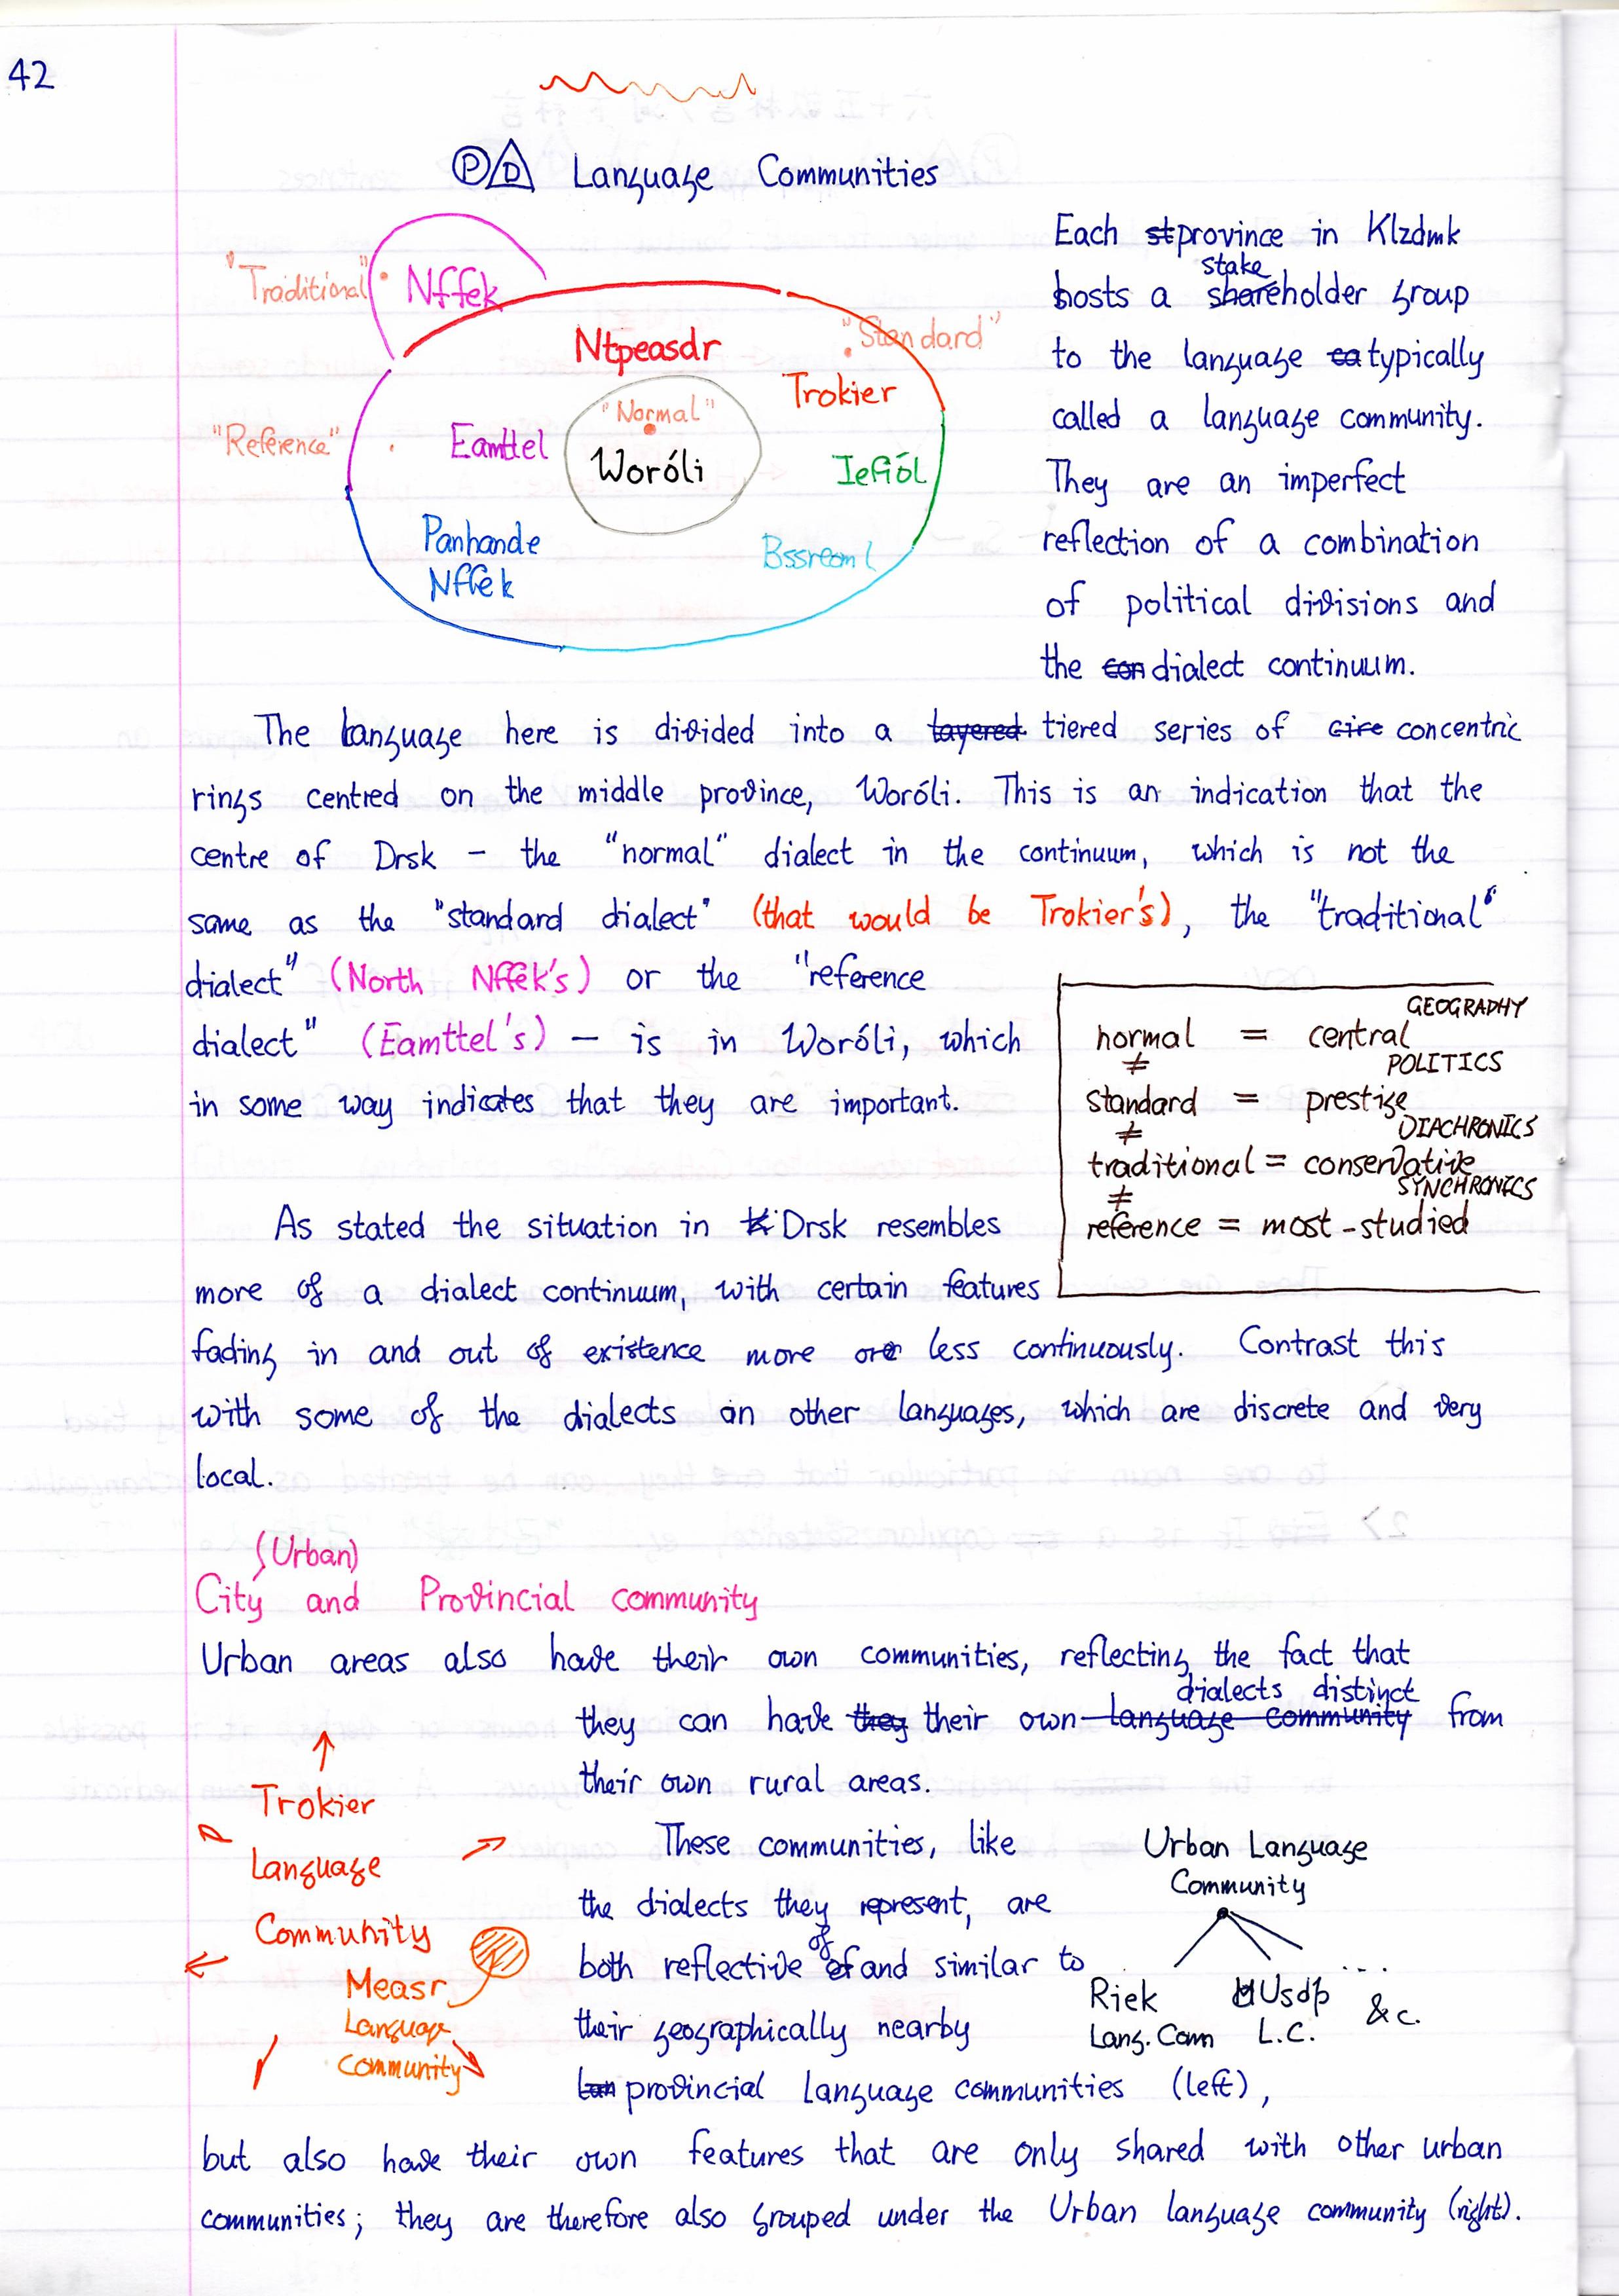 42
Ⓟ D Language Communities
"Traditional"
Nffek
Ntpeasdr
"Standard"
Trokier
"Normal"
Woróli
"Reference"
Eamttel
Iefiól
Panhande
Nffek
Bssreoml
Each st province in Klzdmk
stake
hosts a shareholder group
to the language ca typically
called a language community.
They are an imperfect
reflection of a combination
of political divisions and
the con dialect continuum.
The language here is divided into a layered tiered series of circ concentric
rings centred on the middle province, Woróli. This is an indication that the
centre of Drsk – the "normal" dialect in the continuum, which is not the
same as the "standard dialect" (that would be Trokier's), the "traditional"
dialect" (North Nffek's) or the "reference
dialect" (Eamttel's) – is in Woróli, which
in some way indicates that they are important.
GEOGRAPHY
normal = central
≠ POLITICS
standard = prestige
≠ DIACHRONICS
traditional = conservative
≠ SYNCHRONICS
reference = most-studied
As stated the situation in K Drsk resembles
more of a dialect continuum, with certain features
fading in and out of existence more or less continuously. Contrast this
with some of the dialects in other languages, which are discrete and very
local.
(Urban)
City and Provincial community
Urban areas also have their own communities, reflecting the fact that
dialects distinct
they can have they their own language community from
their own rural areas.
Trokier
Language
Community
Measr
Language
Community
These communities, like
the dialects they represent, are
both reflective of and similar to
their geographically nearby
lan provincial language communities (left),
Urban Language
Community
Riek
Lang. Com
Usdp
L.C.
...
&c.
but also have their own features that are only shared with other urban
communities; they are therefore also grouped under the Urban language community (right).